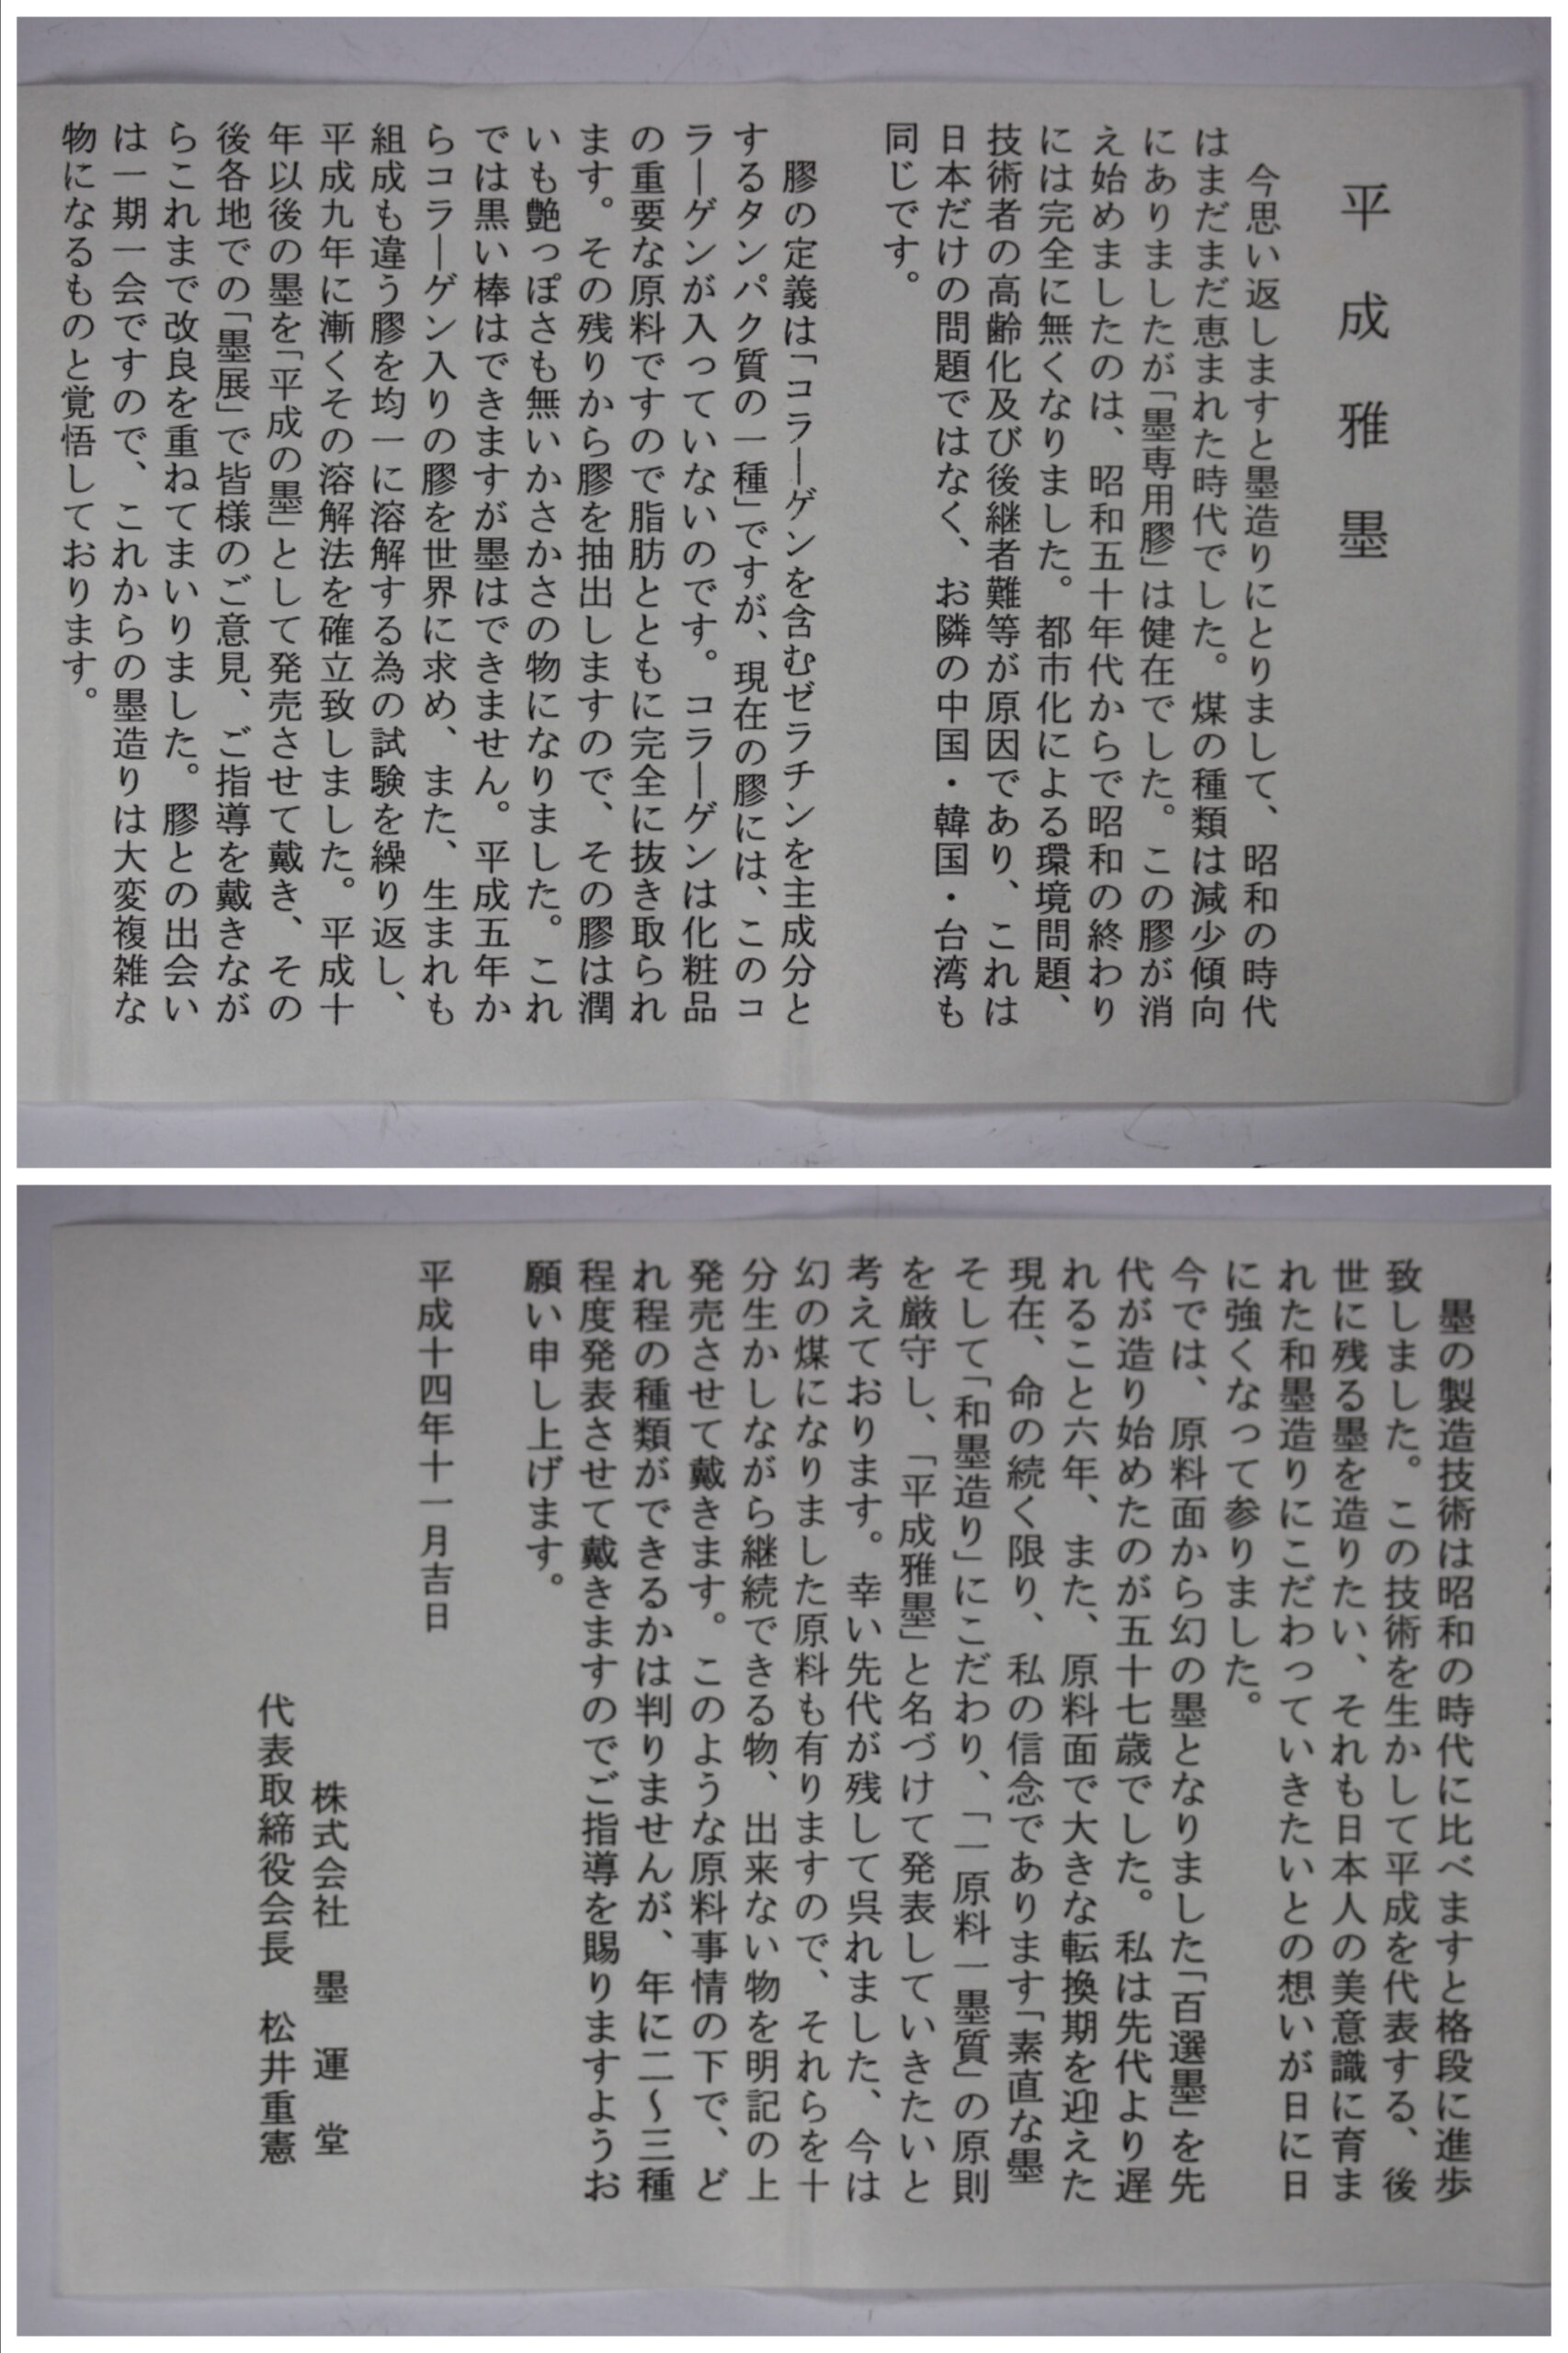 平成雅墨
今思い返しますと墨造りにとりまして、昭和の時代
はまだまだ恵まれた時代でした。煤の種類は減少傾向
にありましたが「墨専用膠」は健在でした。この膠が消
え始めましたのは、昭和五十年代からで昭和の終わり
には完全に無くなりました。都市化による環境問題、
技術者の高齢化及び後継者難等が原因であり、これは
日本だけの問題ではなく、お隣の中国・韓国・台湾も
同じです。
膠の定義は「コラーゲンを含むゼラチンを主成分と
するタンパク質の一種」ですが、現在の膠には、このコ
ラーゲンが入っていないのです。コラーゲンは化粧品
の重要な原料ですので脂肪とともに完全に抜き取られ
ます。その残りから膠を抽出しますので、その膠は潤
いも艶っぽさも無いかさかさの物になりました。これ
では黒い棒はできますが墨はできません。平成五年か
らコラーゲン入りの膠を世界に求め、また、生まれも
組成も違う膠を均一に溶解する為の試験を繰り返し、
平成九年に漸くその溶解法を確立致しました。平成十
年以後の墨を「平成の墨」として発売させて戴き、その
後各地での「墨展」で皆様のご意見、ご指導を戴きなが
らこれまで改良を重ねてまいりました。膠との出会い
は一期一会ですので、これからの墨造りは大変複雑な
物になるものと覚悟しております。
墨の製造技術は昭和の時代に比べますと格段に進歩
致しました。この技術を生かして平成を代表する、後
世に残る墨を造りたい、それも日本人の美意識に育ま
れた和墨造りにこだわっていきたいとの想いが日に日
に強くなって参りました。
今では、原料面から幻の墨となりました「百選墨」を先
代が造り始めたのが五十七歳でした。私は先代より遅
れること六年、また、原料面で大きな転換期を迎えた
現在、命の続く限り、私の信念であります「素直な墨
そして「和墨造り」にこだわり、「一原料一墨質」の原則
を厳守し、「平成雅墨」と名づけて発表していきたいと
考えております。幸い先代が残して呉れました、今は
幻の煤になりました原料も有りますので、それらを十
分生かしながら継続できる物、出来ない物を明記の上
発売させて戴きます。このような原料事情の下で、ど
れ程の種類ができるかは判りませんが、年に二〜三種
程度発表させて戴きますのでご指導を賜りますようお
願い申し上げます。
平成十四年十一月吉日
株式会社 墨運堂
代表取締役会長 松井重憲